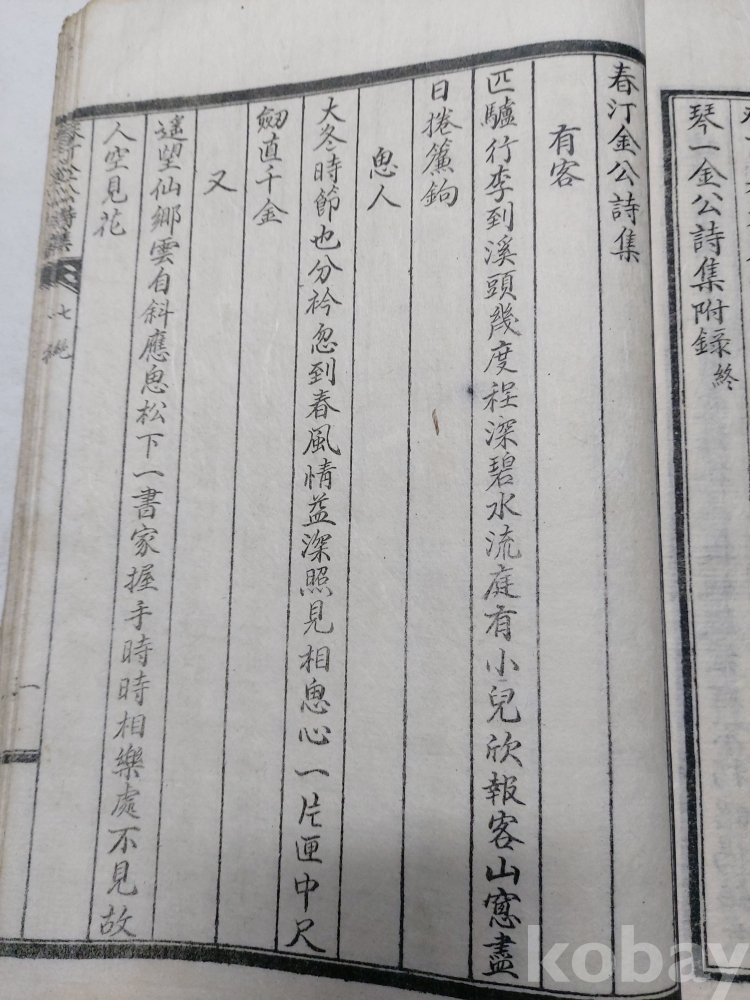 琴一金公詩集附録終
春汀金公詩集
有客
匹驢行李到溪頭幾度程深碧水流庭有小兒欣報客山窓盡
日捲簾鉤
思人
大冬時節也分衿忽到春風情益深照見相思心一片匣中尺
劒直千金
又
遙望仙鄉雲自斜應思松下一書家握手時時相樂處不見故
人空見花
春汀金公詩集
一
kobay